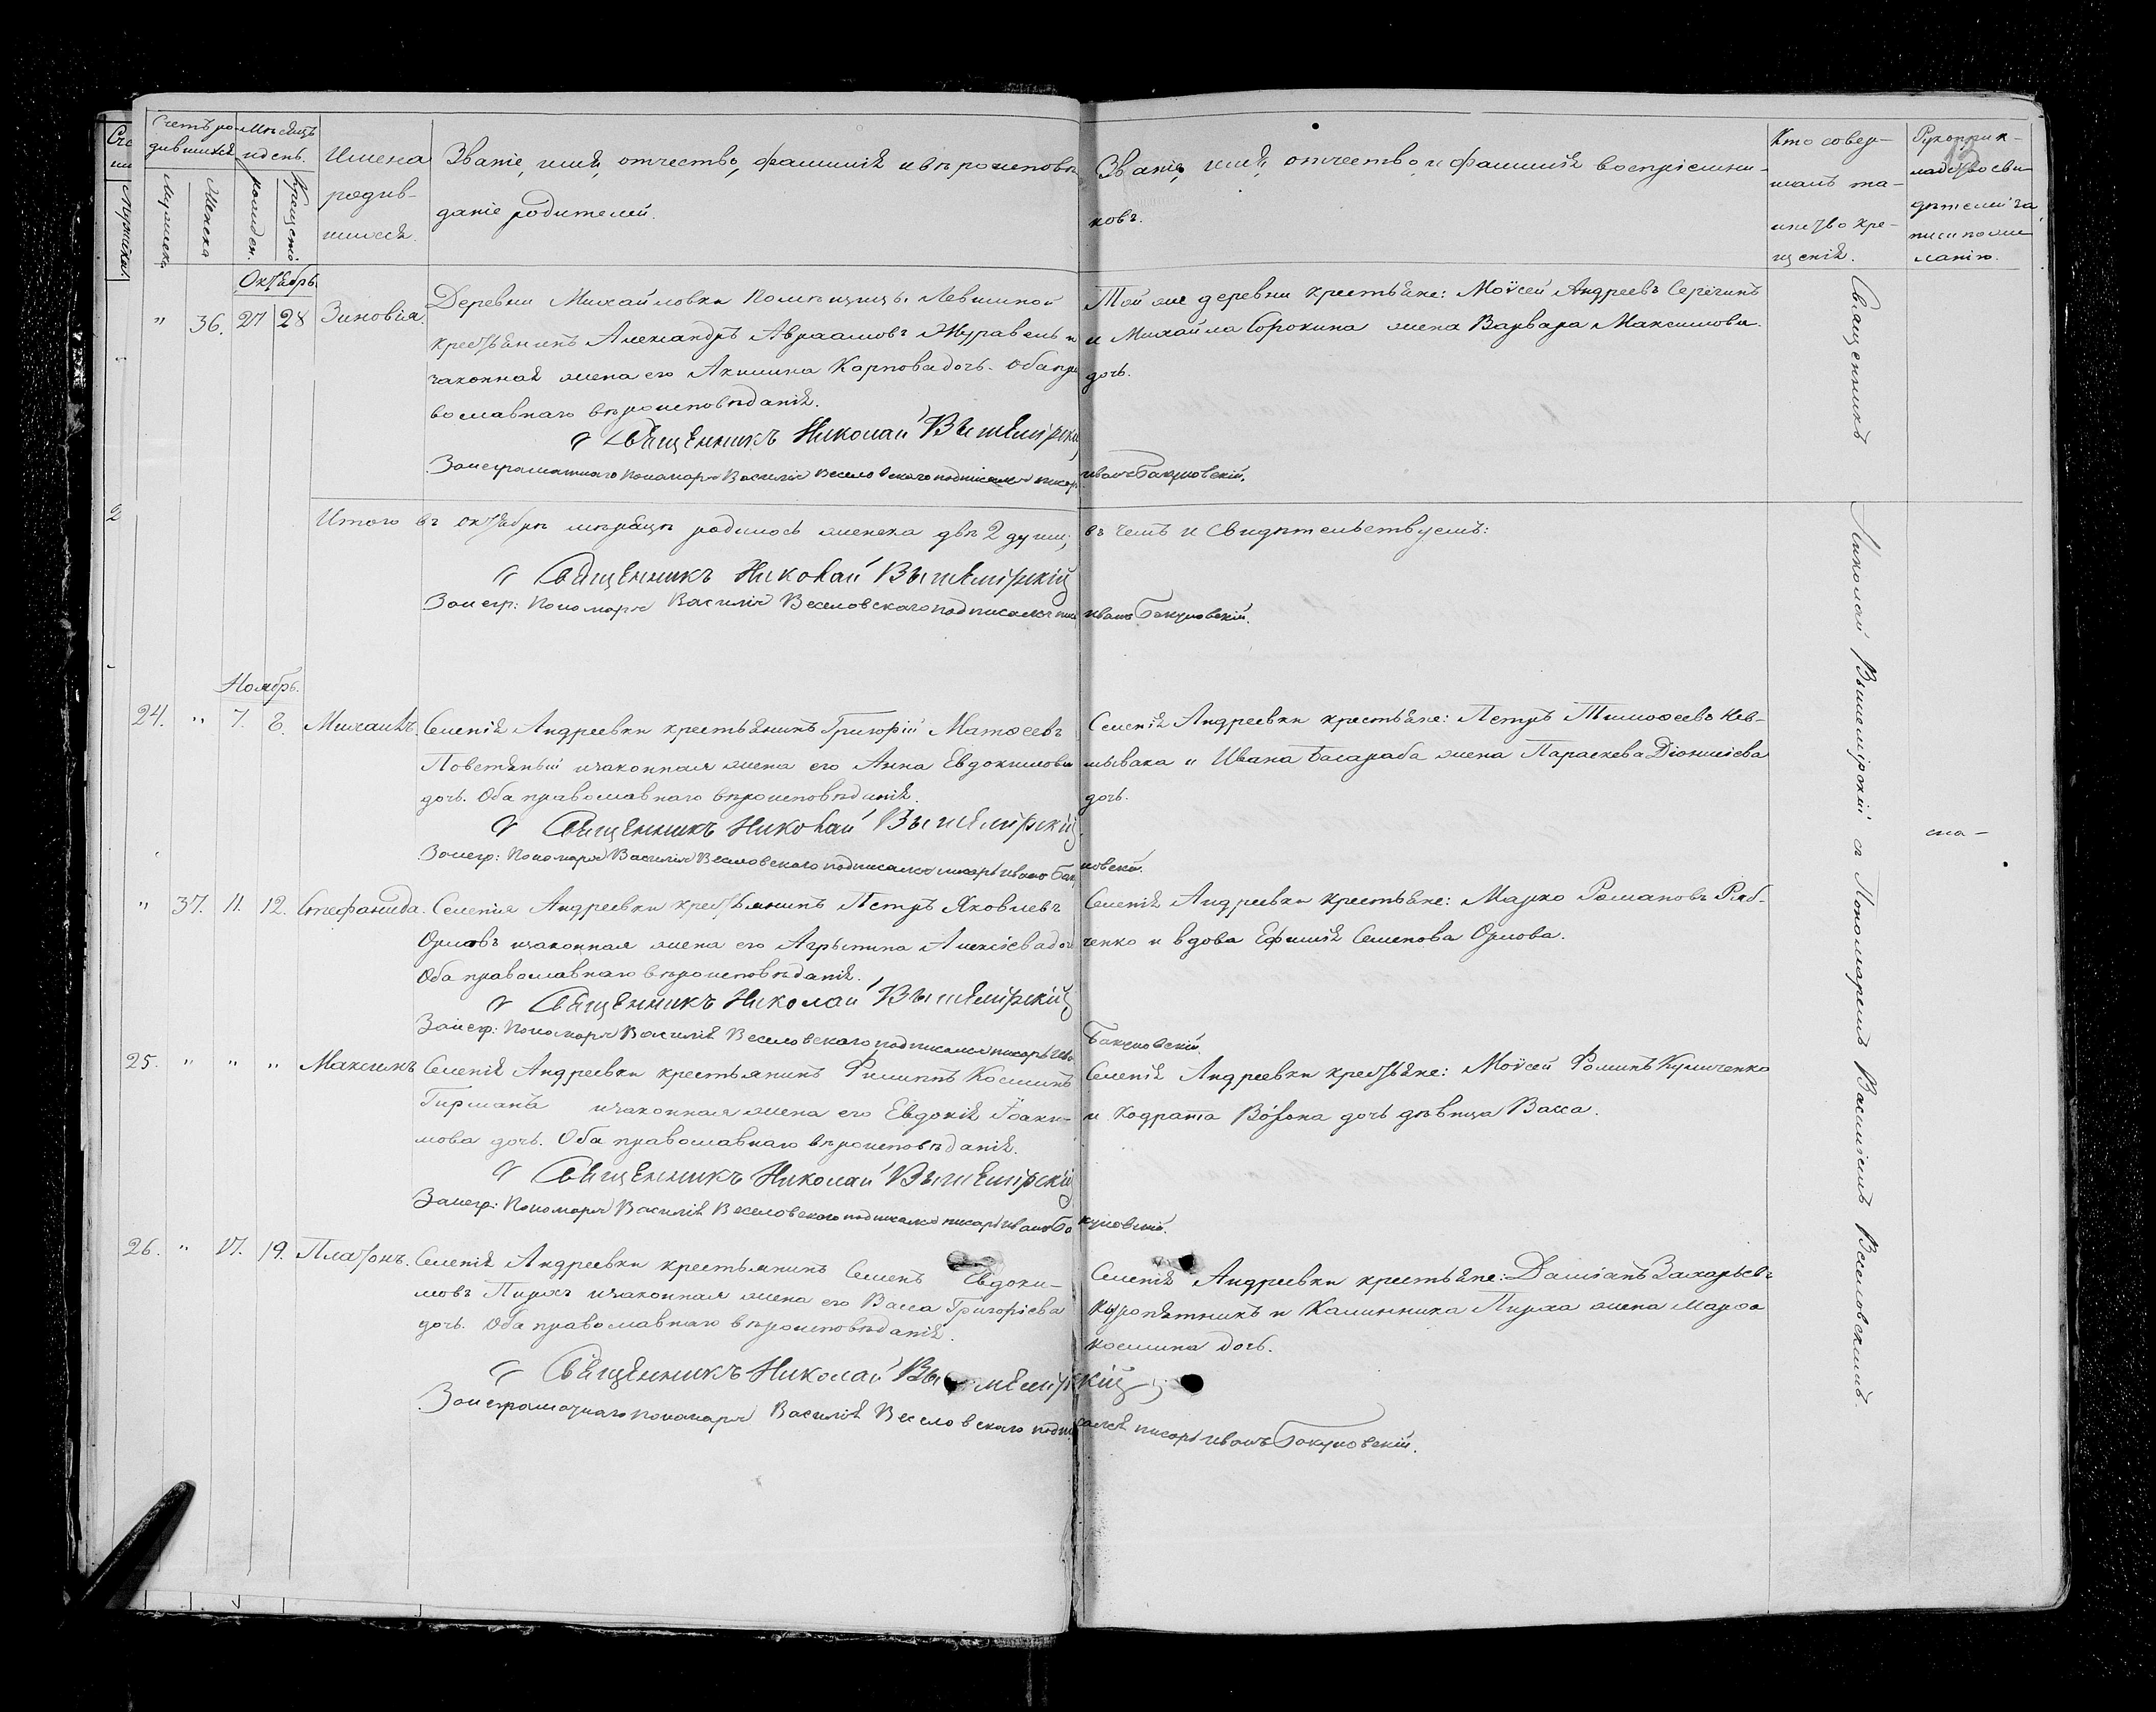 Счетъ ро-
дившихся
Мѣсяцъ
и день.
Мужеска
Женска
рожден.
крещенiя
Имена
родив-
шихся.
Званіе, имя, отчество, фамилія и вѣроисповѣ
даніе родителей.
Званіе, имя, отчество, и фамилія воспріемни-
ковъ.
Кто совер-
шалъ та-
инство кре-
щенія.
Рукоприк-
ладство сви-
дѣтелей за
писи по же-
ланію.
Октябрь.
" 36. 27 28 Зиновія.
Деревни Михайловки помѣщицы Левшиной
крестьянинъ Александръ Авраамовъ Журавель и
законная жена его Акилина Карпова дочь. Оба пра
вославнаго вѣроисповѣданія.
Священникъ Николай Вышемірскій
За неграмотнаго Пономаря Василія Веселовскаго подписался писарь
Иванъ Бакуновскій.
Той же деревни крестьяне: Моѵсей Андреевъ Серегинъ
и Михайла Сорокина жена Варвара Максимова
дочь.
Итого въ октябрѣ мѣсяцѣ родилось женска двѣ 2 души, въ чемъ и свидѣтельствуемъ:
Священникъ Николай Вышемірскій
За негр: Пономаря Василія Веселовскаго подписался пис Иванъ Бакуновскій.
Ноябрь.
24. " 7. 8. Михаилъ.
Селенія Андреевки крестьянинъ Григорій Матѳеевъ
Повстяный и законная жена его Анна Евдокимова
дочь. Оба православнаго вѣроисповѣданія.
Священникъ Николай Вышемірскій
За негр: Пономаря Василія Веселовскаго подписался писарь Иванъ Баку
новскій.
Селенія Андреевки крестьяне: Петръ Тимоѳеевъ Нев-
мывака и Ивана Басараба жена Параскева Діонисіева
дочь.
" 37. 11. 12. Стефанида.
Селенія Андреевки крестьянинъ Петръ Яковлевъ
Орловъ и законная жена его Агрыпина Алексіева доч
Оба православнаго вѣроисповѣданія.
Священникъ Николай Вышемірскій
За негр: Пономаря Василія Веселовскаго подписался писарь Иванъ
Бакуновскій.
Селенія Андреевки крестьяне: Марко Романовъ Ряб-
ченко и вдова Ефимія Семенова Орлова.
25. " " " Максимъ
Селенія Андреевки крестьянинъ Филиппъ Косминъ
Гирманъ и законная жена его Евдокія Іоаки-
мова дочь. Оба православнаго вѣроисповѣданія.
Священникъ Николай Вышемірскій
За негр: Пономаря Василія Веселовскаго подписался писарь Иванъ Ба
куновскій.
Селенія Андреевки крестьяне: Моѵсей Ѳоминъ Куличенко
и Кодрата дочь дѣвица Васса.
26. " 17. 19. Платонъ.
Селенія Андреевки крестьянинъ Семенъ Евдоки-
мовъ Пирхъ и законная жена его Васса Григоріева
дочь. Оба православнаго вѣроисповѣданія.
Священникъ Николай Вышемірскій
За неграмотнаго пономаря Василія Веселовскаго подпи
сался писарь Иванъ Бакуновскій.
Селенія Андреевки крестьяне: Даміанъ Захарьевъ
Куропятникъ и Калинника Пирха жена Марѳа
Космина дочь.
Священникъ Николай Вышемірскій съ Пономаремъ Василіемъ Веселовскимъ.